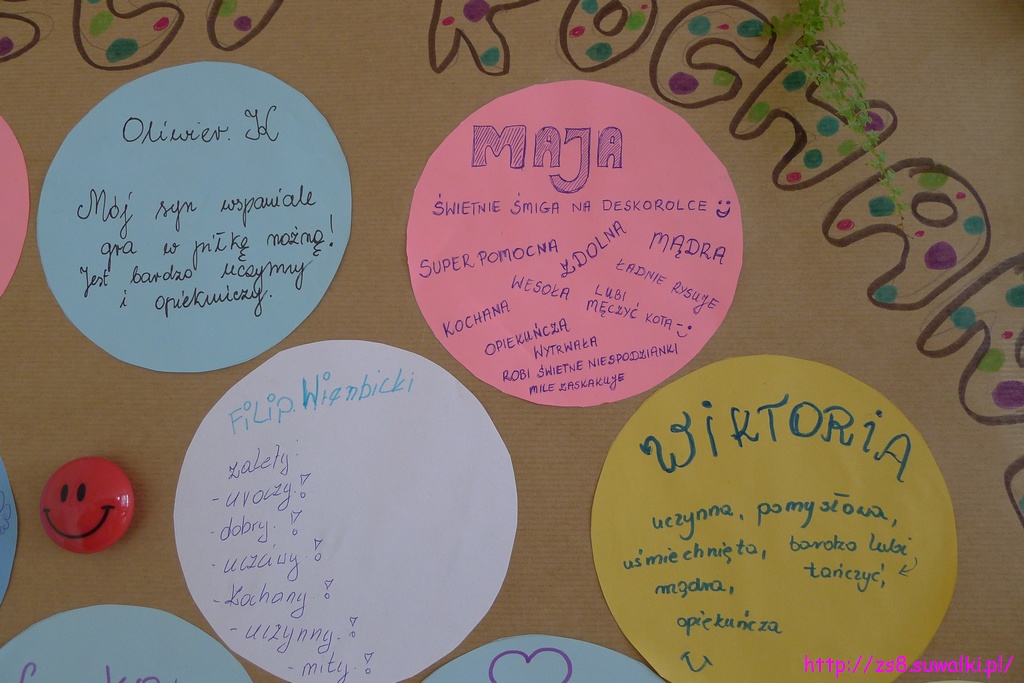 KOCHA
Oliwier. K
Mój syn wspaniale
gra w piłkę nożną!
Jest bardzo uczynny
i opiekuńczy.
MAJA
ŚWIETNIE ŚMIGA NA DESKOROLCE
SUPER POMOCNA
ZDOLNA
MĄDRA
WESOŁA
ŁADNIE RYSUJE
KOCHANA
LUBI
MĘCZYĆ KOTA
OPIEKUŃCZA
WYTRWAŁA
ROBI ŚWIETNE NIESPODZIANKI
MILE ZASKAKUJE
Filip
zalety:
- uroczy!
- dobry!
- uczciwy!
- kochany!
- uczynny!
- miły!
WiKTORiA
uczynna, pomysłowa,
uśmiechnięta, bardzo lubi
tańczyć,
mądra,
opiekuńcza
http://zs8.suwalki.pl/